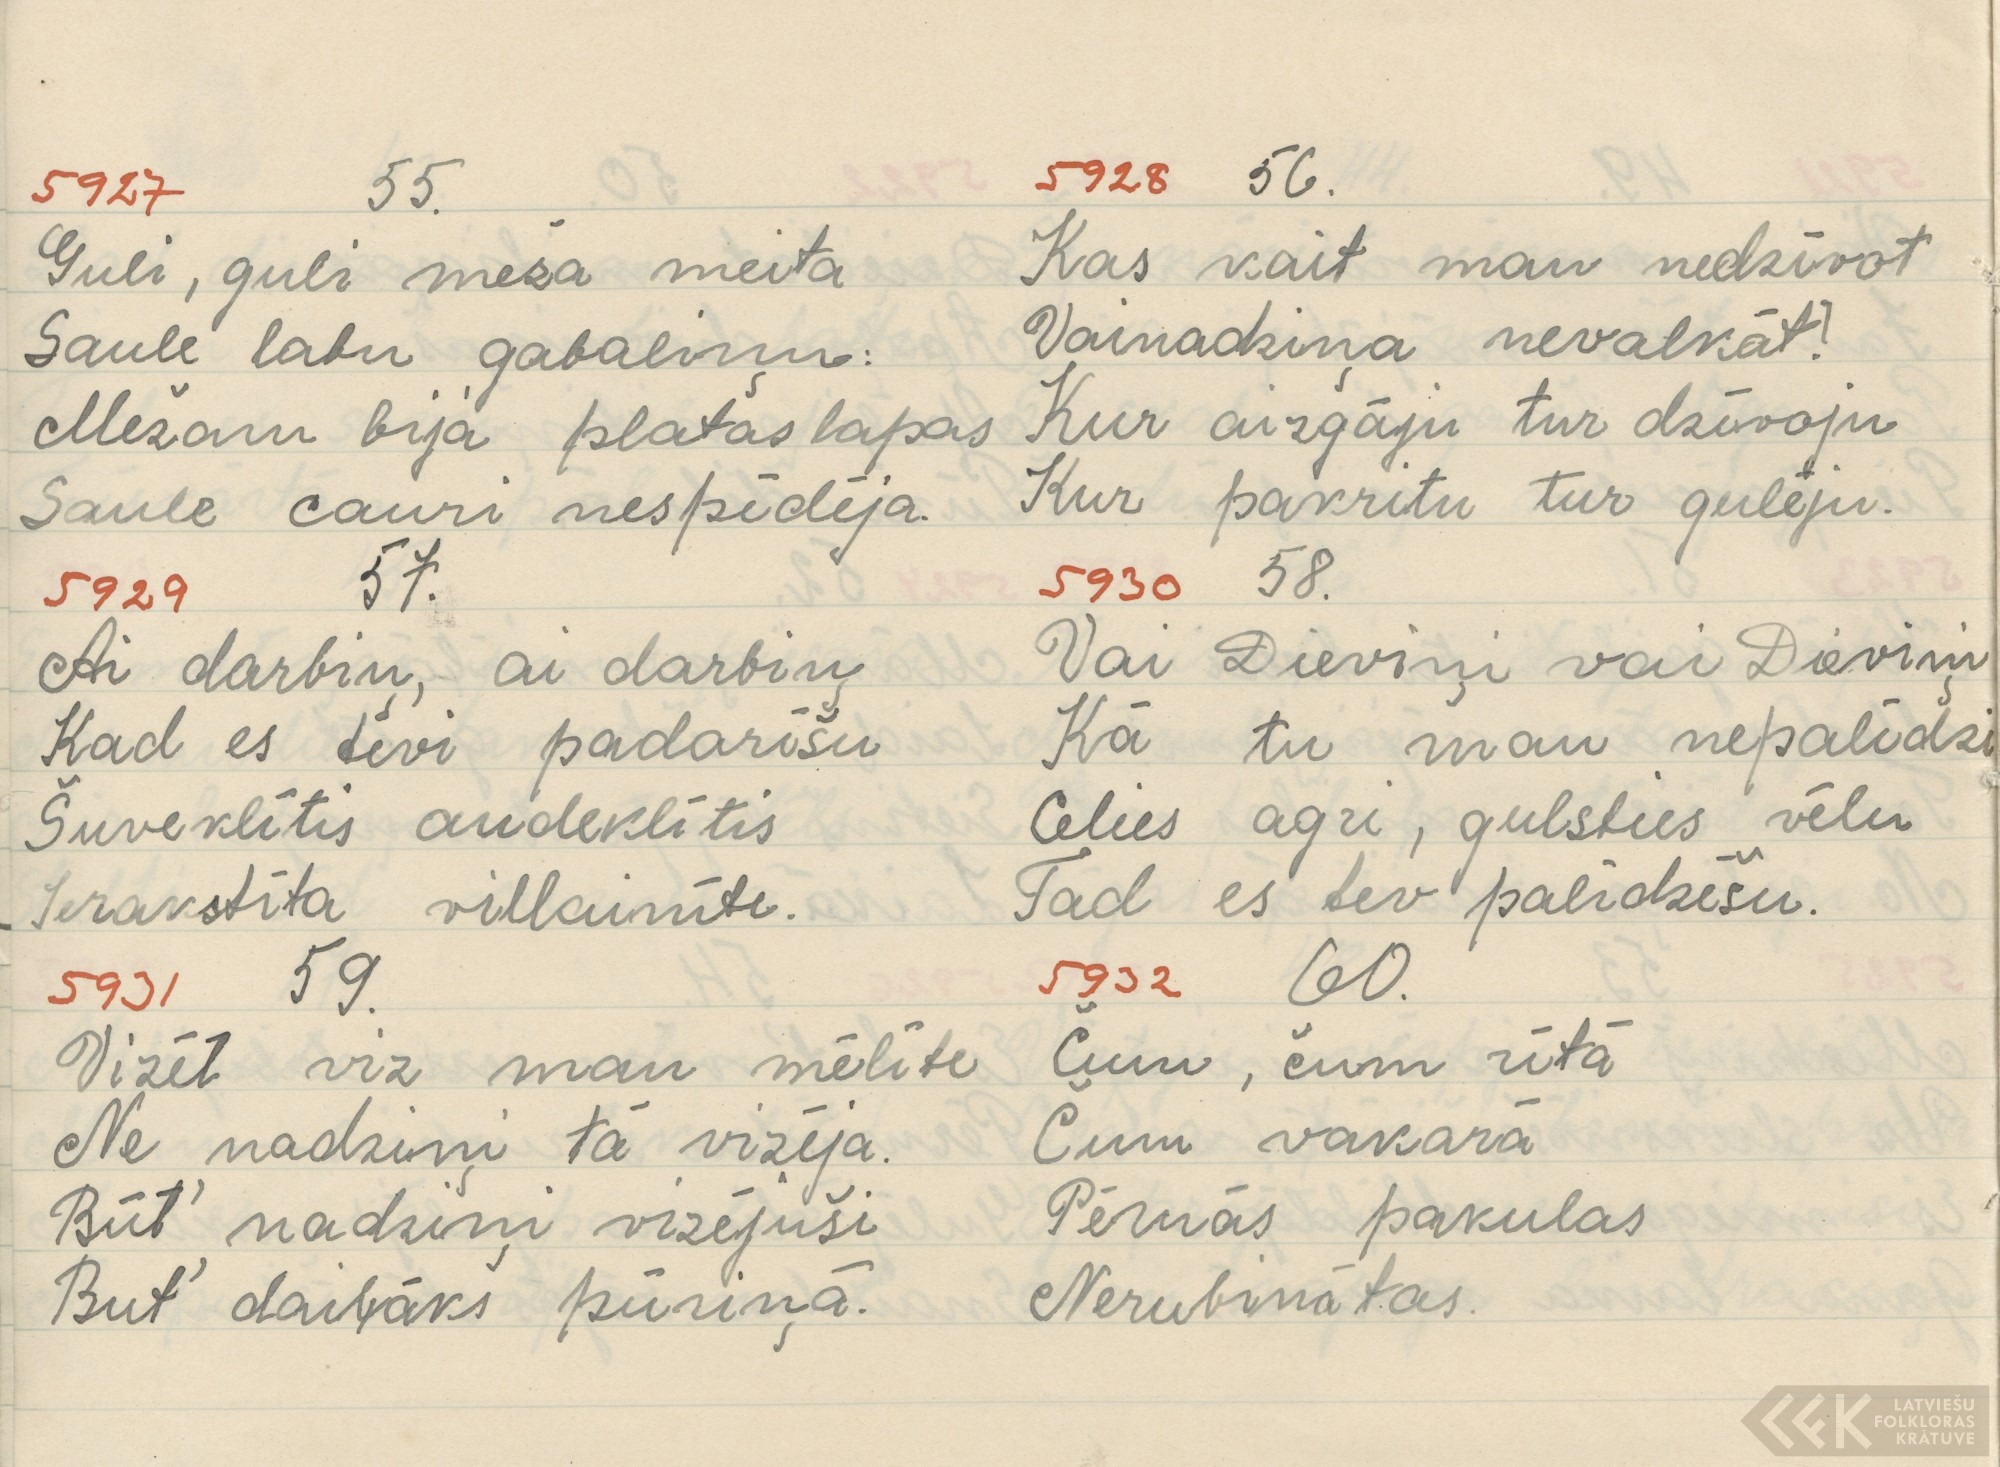 5927 55.
Guli, guli meža meita
Saule labu gabaliņu:
Mežam bija platas lapas
Saule cauri nespīdēja.
5928 56.
Kas kait man nedzīvot
Vainadziņa nevalkāt!
Kur aizgāju tur dzīvoju
Kur pakritu tur gulēju.
5929 57.
Ai darbiņ, ai darbiņ
Kad es tevi padarīšu
Šuveklītis audeklītis
Ierakstīta villainīte.
5930 58.
Vai Dieviņi vai Dieviņi
Kā tu man nepalīdzi
Celies agri, gulsties vēlu
Tad es tev palīdzēšu.
5931 59.
Vizēt viz man mēlīte
Ne nadziņi tā vizēja.
Būt' nadziņi vizējuši
But' daibāks pūriņā.
5932 60.
Čum, čum rītā
Čum vakarā
Pērnās pakulas
Nerubinātas.
LATVIEŠU
FOLKLORAS
KRĀTUVE